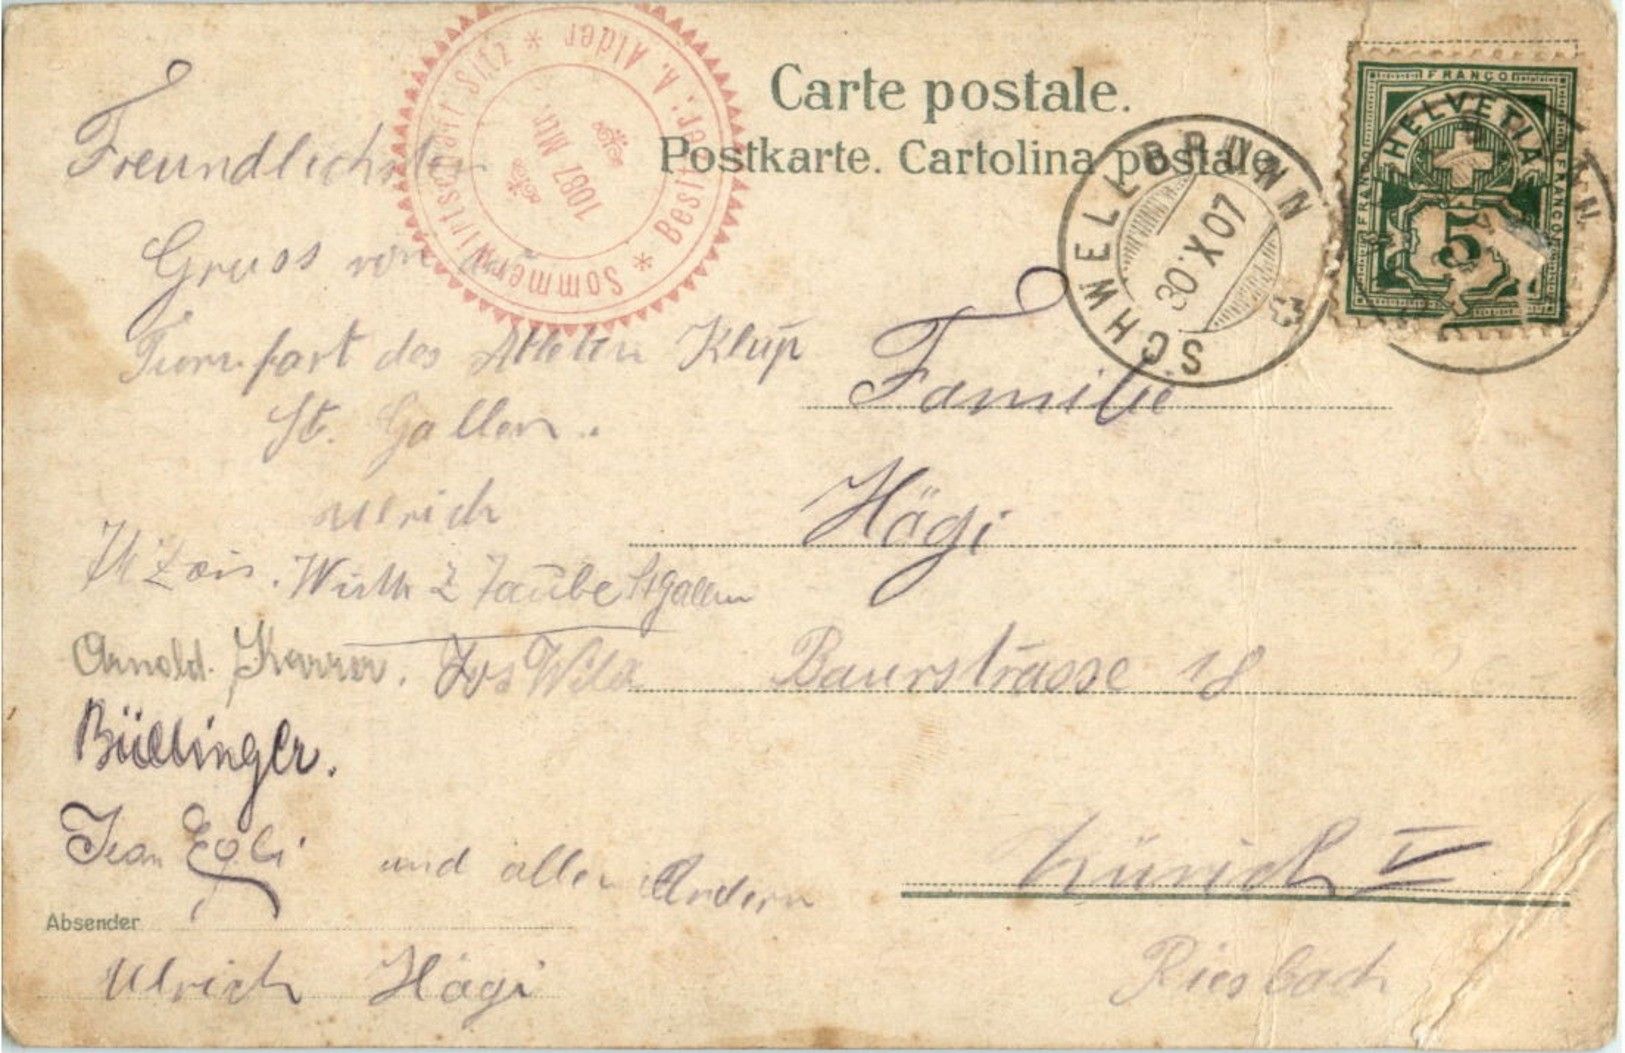 Carte postale.
Postkarte. Cartolina postale
Sommerwirtschaft Sitz * Besitzer: A. Alder *
1087 Mtr.
SCHWELLBRUNN
30.X.07
FRANCO
HELVETIA
FRANCO
FRANCO
5
Freundlichsten
Gruss von
des Athleten Klup
St. Gallen.
Ulrich
Wirth z Taube St Gallen
Arnold. Karrer. Jos Wild
Büllinger.
Jean Egli und allen Andern
Absender
Ulrich Hägi
Familie
Hägi
Baurstrasse 18
Zürich V
Riesbach